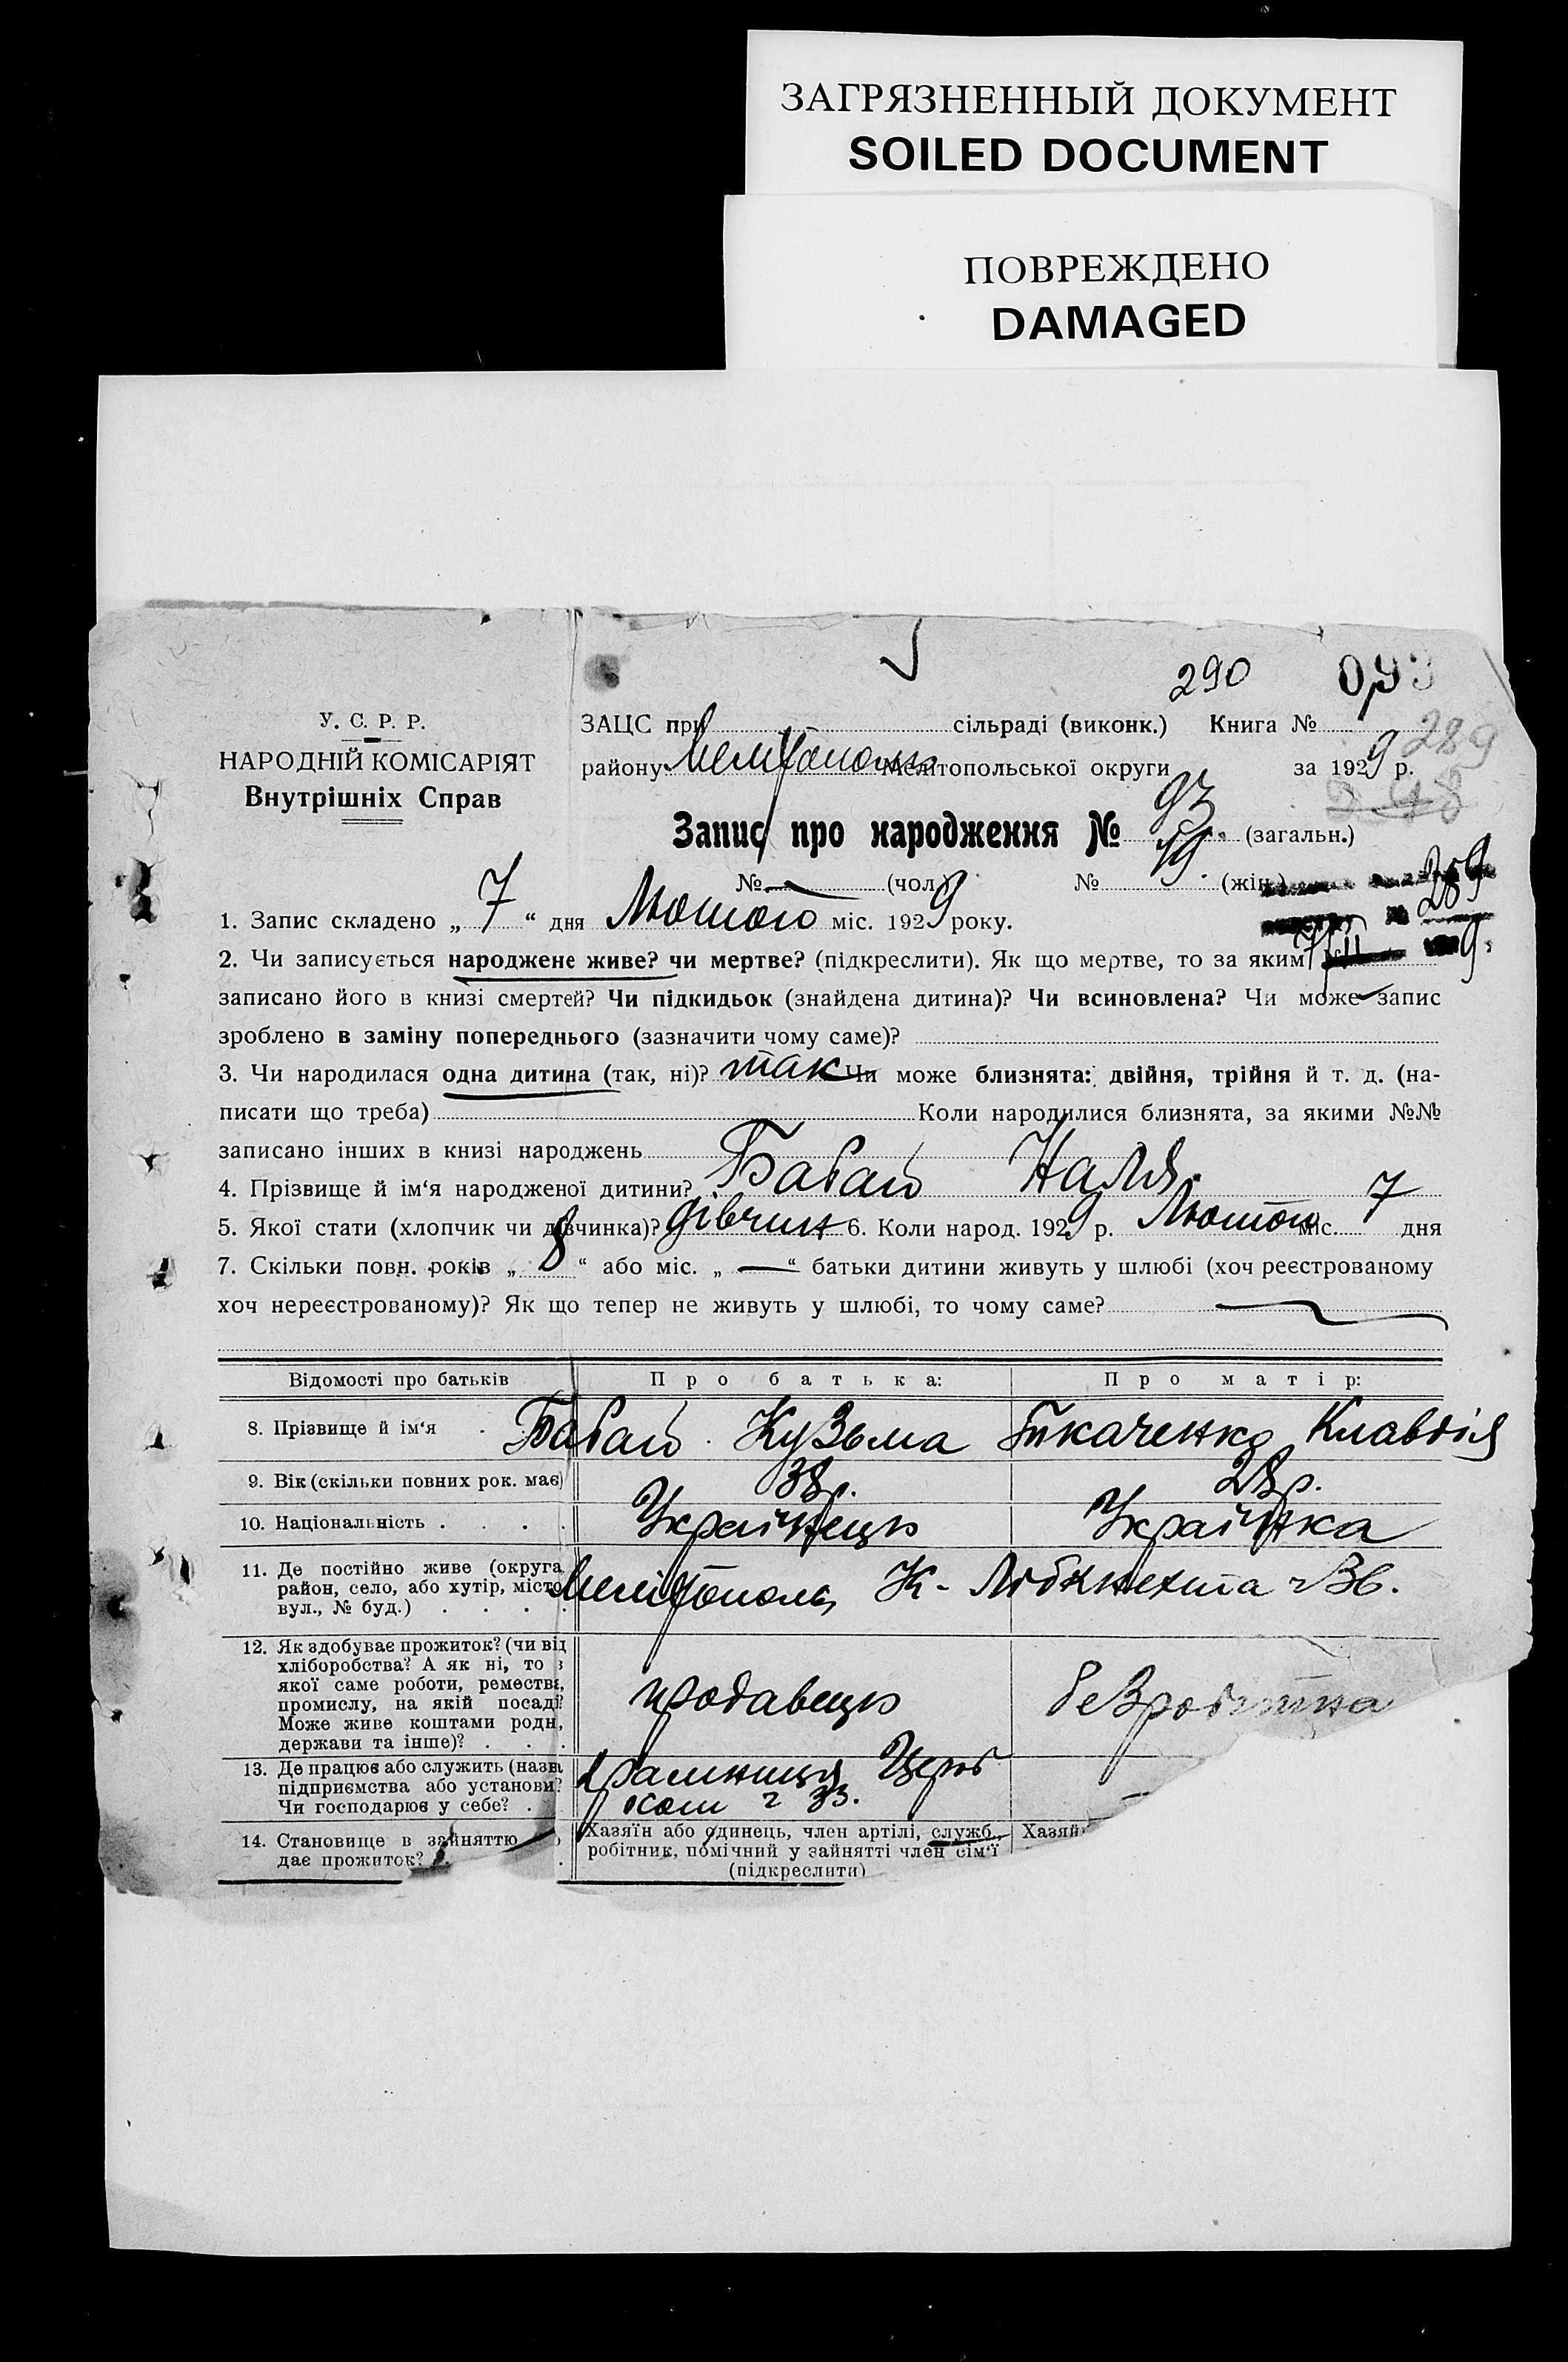 ЗАГРЯЗНЕННЫЙ ДОКУМЕНТ
SOILED DOCUMENT
ПОВРЕЖДЕНО
DAMAGED
290
У. С. Р. Р.
НАРОДНІЙ КОМІСАРІЯТ
Внутрішніх Справ
ЗАЦС при сільраді (виконк.) Книга №
289
району Мелітополь Мелітопольської округи за 1929 р.
Запис про народження № 93 (загальн.)
№ — (чол.) № 49. (жін.)
289
1. Запис складено „ 7 “ дня Лютого міс. 1929 року.
2. Чи записується народжене живе? чи мертве? (підкреслити). Як що мертве, то за яким
записано його в книзі смертей? Чи підкидьок (знайдена дитина)? Чи всиновлена? Чи може запис
зроблено в заміну попереднього (зазначити чому саме)?
3. Чи народилася одна дитина (так, ні)? так Чи може близнята: двійня, трійня й т. д. (на-
писати що треба) Коли народилися близнята, за якими №№
записано інших в книзі народжень
4. Прізвище й ім‘я народженої дитини? Бабай
5. Якої стати (хлопчик чи дівчинка)? дівчин 6. Коли народ. 1929 р. Лютого міс. 7 дня
7. Скільки повн. років „ 8 “ або міс. „ — “ батьки дитини живуть у шлюбі (хоч реєстрованому
хоч нереєстрованому)? Як що тепер не живуть у шлюбі, то чому саме?
Відомості про батьків
Про батька:
Про матір:
8. Прізвище й ім‘я
Бабай Кузьма
Ткаченко Клавдія
9. Вік (скільки повних рок. має)
38 р.
28 р.
10. Національність
Українець
Українка
11. Де постійно живе (округа,
район, село, або хутір, місто,
вул., № буд.)
Мелітополь, К-Лібкнехта
12. Як здобуває прожиток? (чи від
хліборобства? А як ні, то з
якої саме роботи, ремества,
промислу, на якій посаді?
Може живе коштами родн,
держави та інше)?
продавець
безробітна
13. Де працює або служить (назва
підприємства або установи?
Чи господарює у себе?
крамниця Цероб
коп ч 33.
14. Становище в зайняттю
дає прожиток?
Хазяїн або одинець, член артілі, служб.,
робітник, помічний у зайнятті член сім‘ї
(підкреслити)
Хазяї